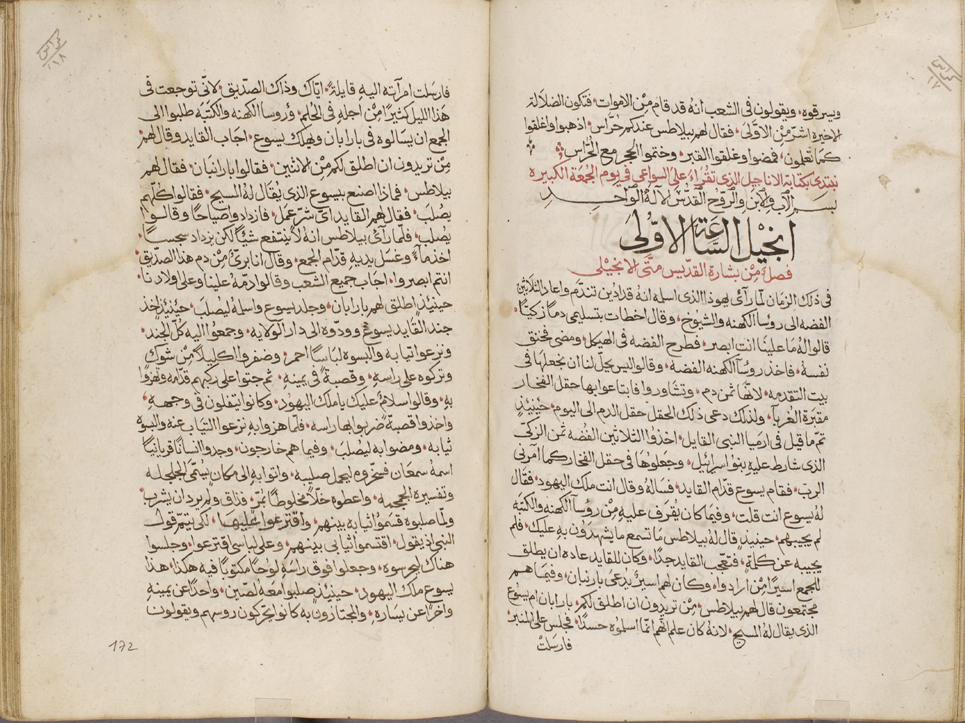 ويسرقوه ويقولون في الشعب انه قد قام من الاموات فتكون الضلالة
الاخيرة اشر من الاولى فقال لهم بيلاطس عندكم حراس اذهبوا واغلقوا
كما تعلمون فمضوا وغلقوا القبر وختموا الحجر مع الحراس
نبتدى بكتابة الاناجيل الذي تقراء على السواعي في يوم الجمعة الكبيره
بسم الاب والابن والروح القدس لاله الواحد
انجيل الساعة الاولى
فصل من بشارة القديس متى الانجيلي
في ذلك الزمان لما رأى يهوذا الذى اسلمه انه قد ادين تندم واعاد الثلاثين
الفضه الى روسآ الكهنه والشيوخ وقال اخطات بتسليمي دما زكيا
قالوا له ما علينا انت ابصر فطرح الفضه في الهيكل ومضى فخنق
نفسه فاخذ روسآ الكهنه الفضه وقالوا ليس يحل لنا ان نجعلها في
بيت التقدمه لانها ثمن دم وتشاوروا فابتاعوا بها حقل الفخار
مقبرة الغربآ ولذلك دعى ذلك الحقل حقل الدم الى اليوم حينيذ
تم ما قيل في ارميا النبى القايل اخذوا الثلاثين الفضه ثمن الزكي
الذي شارط عليه بنو اسراييل وجعلوها في حقل الفخار كما امرني
الرب فقام يسوع قدام القايد فساله وقال انت ملك اليهود فقال
له يسوع انت قلت وفيما كان يقرف عليه من روسآ الكهنه والكتبه
لم يجيبهم حينيذ قال له بيلاطس ما تسمع ما يشهدون به عليك فلم
يجيبه عن كلمة فتعجب القايد جدا وكان للقايد عاده ان يطلق
للجمع اسيرا من ارادوا وكان لهم اسير يدعى بارنبان وفيما هم
مجتمعون قال لهم بيلاطس من تريدون ان اطلق لكم بارابان ام يسوع
الذى يقال له المسيح لانه كان علم انهم انما اسلموه حسدا فجلس على المنبر
فارسلت
فارسلت امرآته اليه قايلة اياك وذاك الصديق لانى توجعت في
هذا الليل كثيرا من اجله في الحلم وروسآ الكهنه والكتبه طلبوا الى
الجمع ان يسالوه في بارابان ويهلك يسوع اجاب القايد وقال لهم
من تريدون ان اطلق لكم من الاثنين فقالوا بارانبان فقال لهم
بيلاطس فماذا اصنع بيسوع الذى يقال له المسيح فقالوا كلهم
يصلب فقال لهم القايد اى شر عمل فازدادوا صياحا وقالوا
يصلب فلما رآى بيلاطس انه لا ينتفع شيا لكن يزداد سجيسا
اخذ مآ وغسل يديه قدام الجمع وقال انا بري من دم هذا الصديق
انتم ابصروا اجاب جميع الشعب وقالوا دمه علينا وعلى ولادنا
حينيذ اطلق لهم بارابان وجلد يسوع واسلمه ليصلب حينيذ اخذ
جند القايد يسوع وودوه الى دار الولايه وجمعوا اليه كل الجند
ونزعوا ثيابه والبسوه لباسا احمر وضفروا اكليلا من شوك
وتركوه على راسه وقصبة في يمينه ثم جثوا على ركبهم قدامه وهزوا
به وقالوا سلام عليك يا ملك اليهود وكانوا يتفلون في وجهه
واخذوا قصبة ضربوا بها راسه فلما هزوا به نزعوا الثياب عنه والبسوه
ثيابه ومضوا به ليصلب وفيما هم خارجون وجدوا انسانا قريانيا
اسمه سمعان فسخروه ليحمل صليبه واتوا به الى مكان يسمى الجلجله
وتفسيره الجمجمه واعطوه خلا مخلوطا بمر فذاق ولم يرد ان يشرب
ولما صلبوه قسموا ثيابه بينهم واقترعوا عليها لكى يتم قول
النبي اذ يقول اقتسموا ثيابي بينهم وعلى لباسى اقترعوا وجلسوا
هناك يحرسوه وجعلوا فوق راسه لوحا مكتوبا فيه هكذا هذا
يسوع ملك اليهود حينيذ صلبوا معه لصين واحدا عن يمينه
واخر عن يساره والمجتازون به كانوا يحركون روسهم ويقولون
172